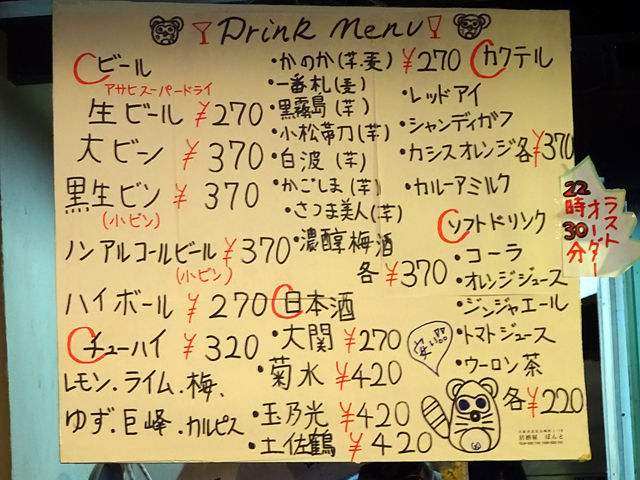 Drink Menu
ビール
アサヒスーパードライ
生ビール ¥270
大ビン ¥370
黒生ビン ¥370
(小ビン)
ノンアルコールビール ¥370
(小ビン)
ハイボール ¥270
チューハイ ¥320
レモン.ライム.梅、
ゆず.巨峰.カルピス
・かのか(芋.麦) ¥270
・一番札(麦)
・黒霧島(芋)
・小松帯刀(芋)
・白波(芋)
・かごしま(芋)
・さつま美人(芋)
・濃醇梅酒
各¥370
日本酒
・大関 ¥270
・菊水 ¥420
・玉乃光 ¥420
・土佐鶴 ¥420
カクテル
・レッドアイ
・シャンディガフ
・カシスオレンジ 各¥370
・カルーアミルク
ソフトドリンク
・コーラ
・オレンジジュース
・ジンジャエール
・トマトジュース
・ウーロン茶
各¥220
ラスト
オーダー
22時30分
居酒屋 ぽんと